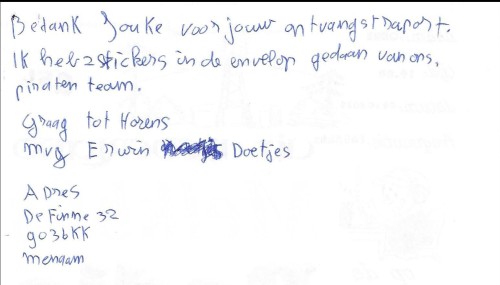 Bedank Jouke voor jouw ontvangstraport.
Ik heb 2 stickers in de envelop gedaan van ons,
piraten team.
Graag tot Horens
mvg Erwin Doetjes
Adres
De Finne 32
9036KK
menaam